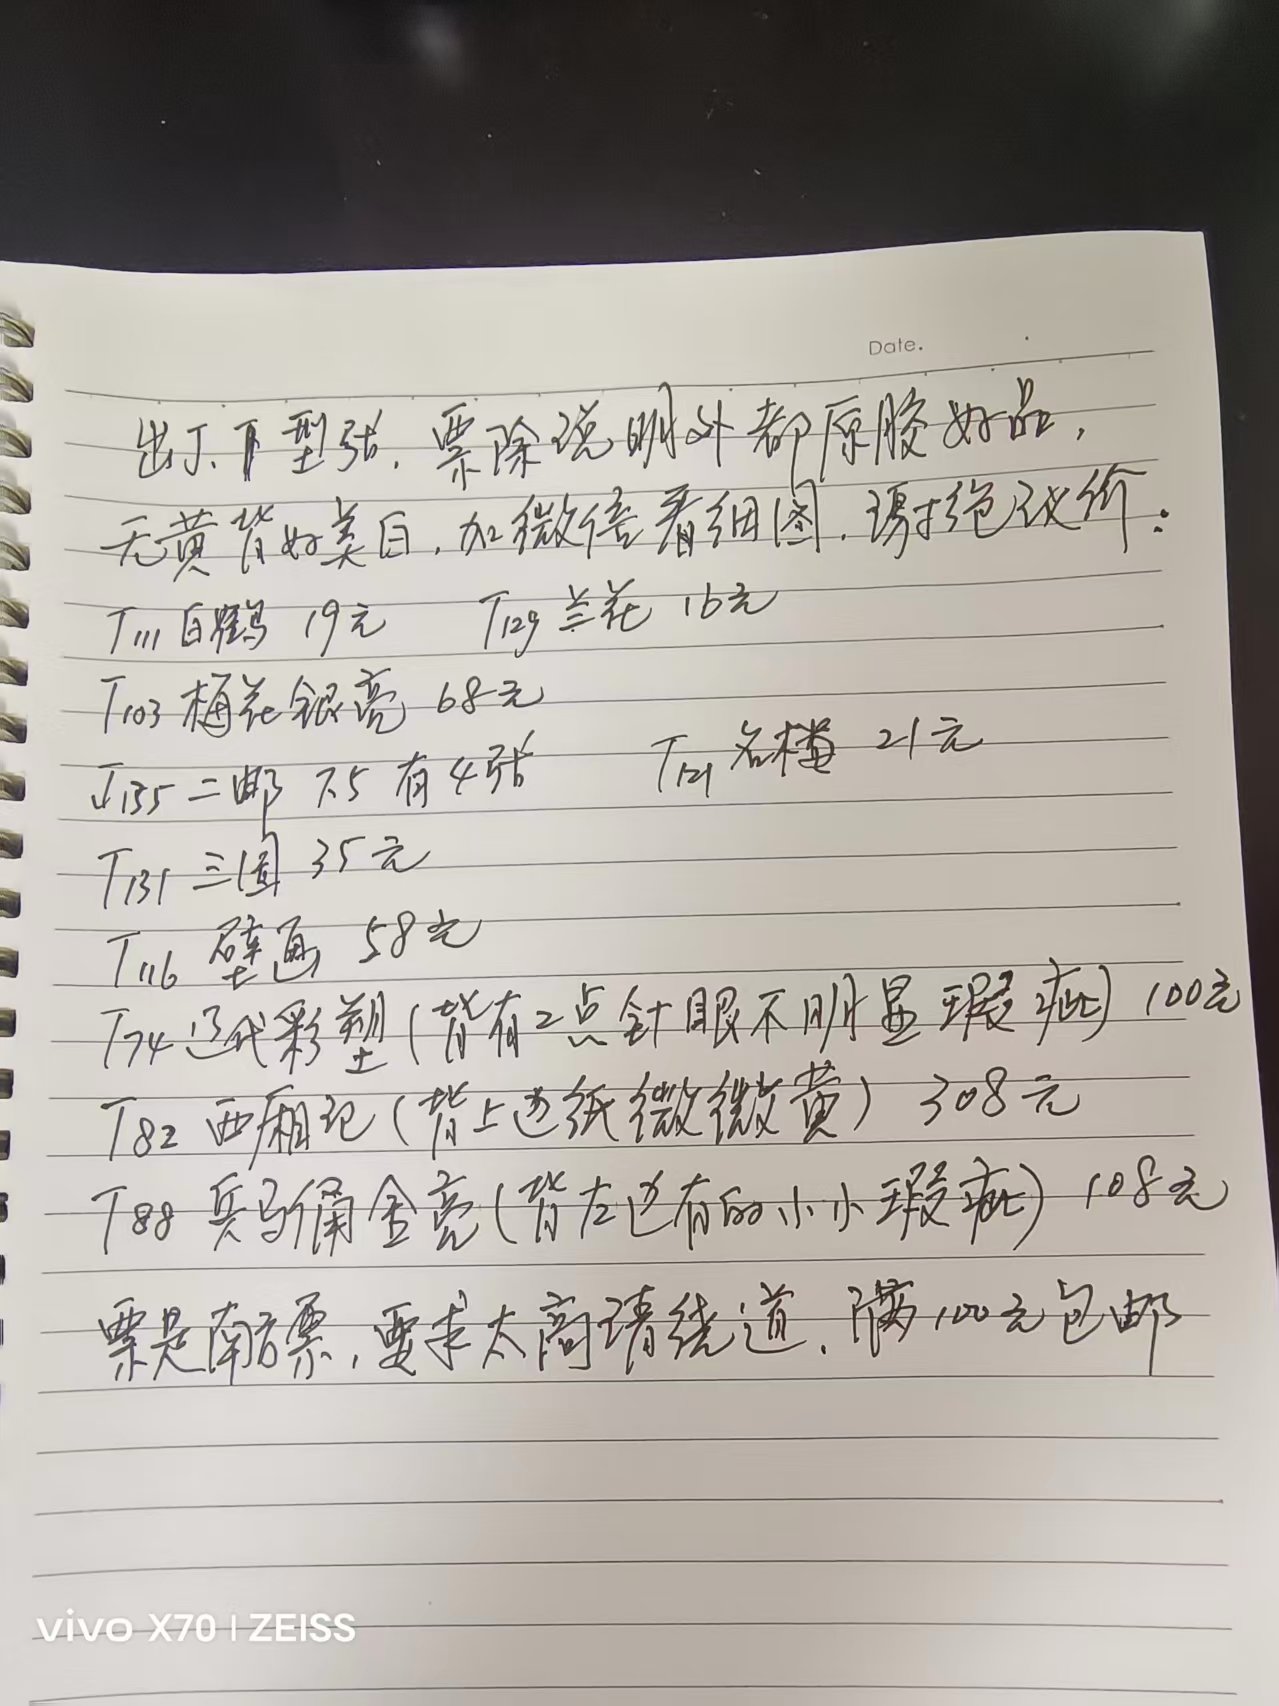 Date.
出J.T型张,票除说明外都原胶好品,
无黄背好美白,加微信看细图,谢拒绝议价:
T111白鹤 19元 T129兰花 16元
T103梅花银亮 68元
J135二邮 7.5 有4张 T121名楼 21元
T131三国 35元
T116 壁画 58元
T74辽代彩塑(背有2点针眼不明显瑕疵) 100元
T82 西厢记(背上边纸微微黄) 308元
T88 兵马俑金亮(背左边有的小小瑕疵) 108元
票是南方票,要求太高请绕道,满100元包邮
vivo X70 | ZEISS